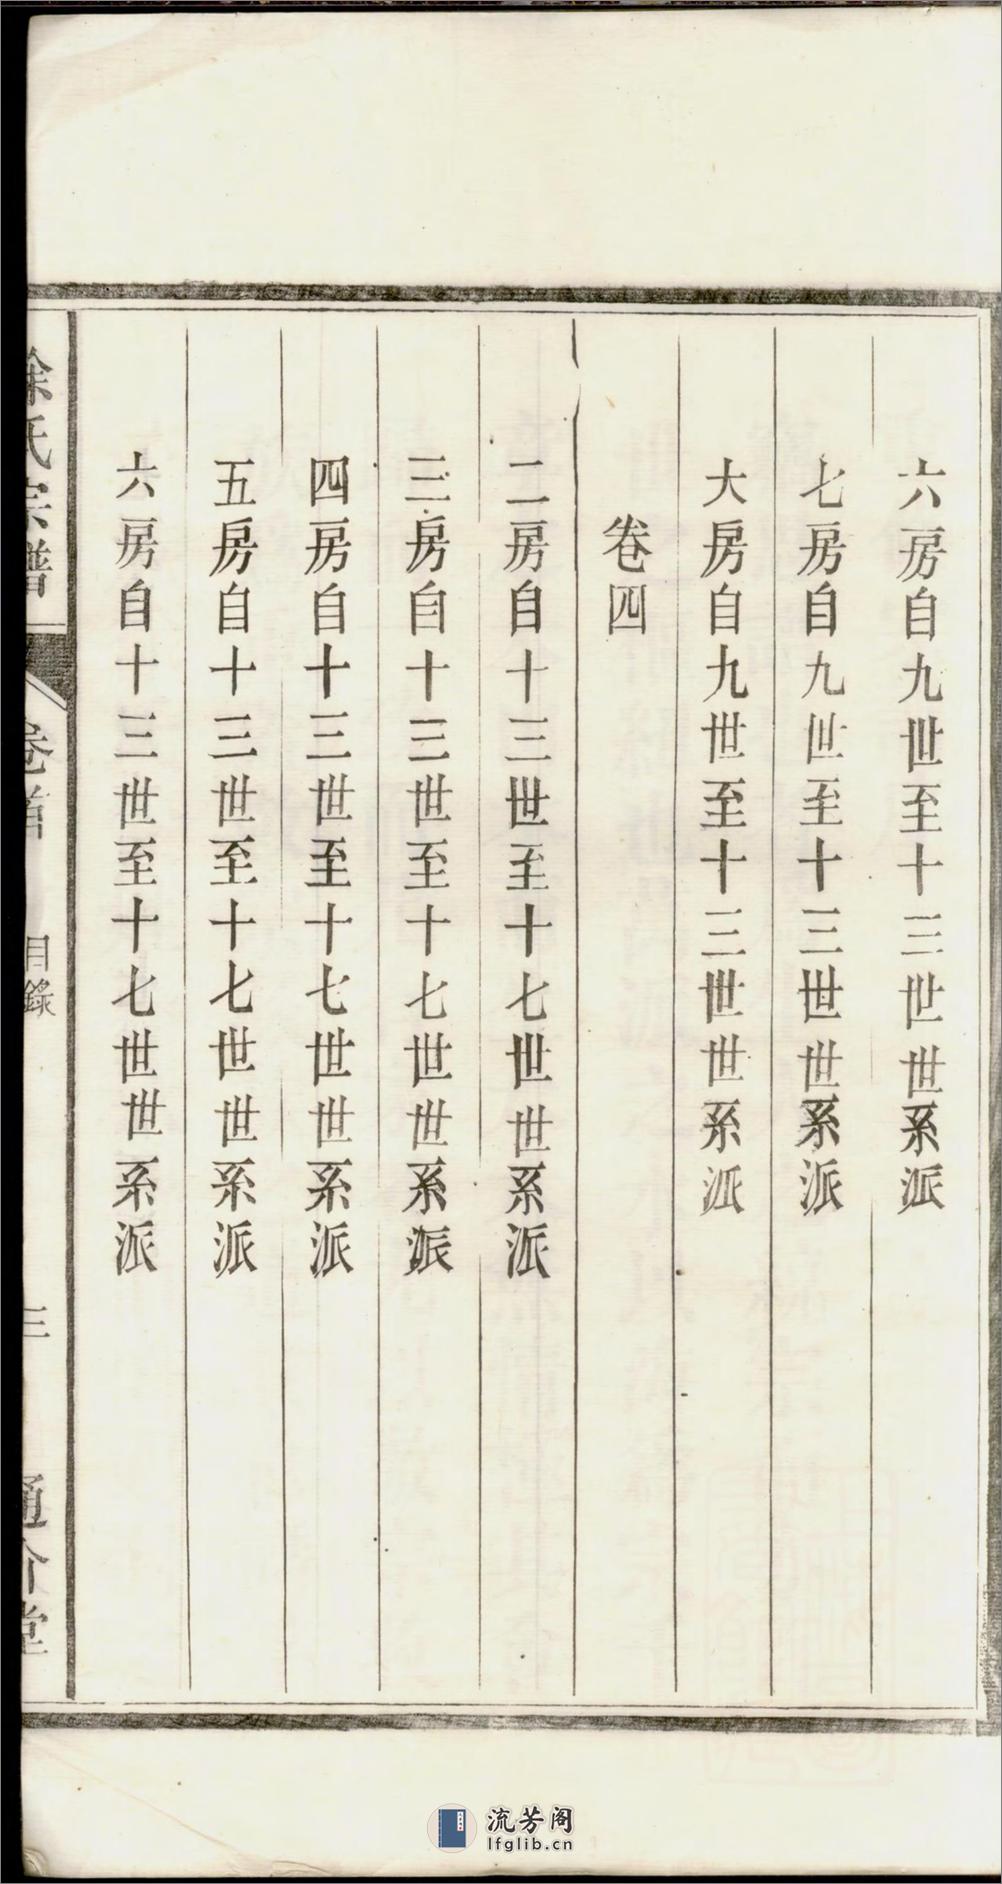 六房自九世至十三世世系派
七房自九世至十三世世系派
大房自九世至十三世世系派
卷四
二房自十三世至十七世世系派
三房自十三世至十七世世系派
四房自十三世至十七世世系派
五房自十三世至十七世世系派
六房自十三世至十七世世系派
徐氏宗譜
卷首
目錄
三
通介堂
流芳阁
lfglib.cn